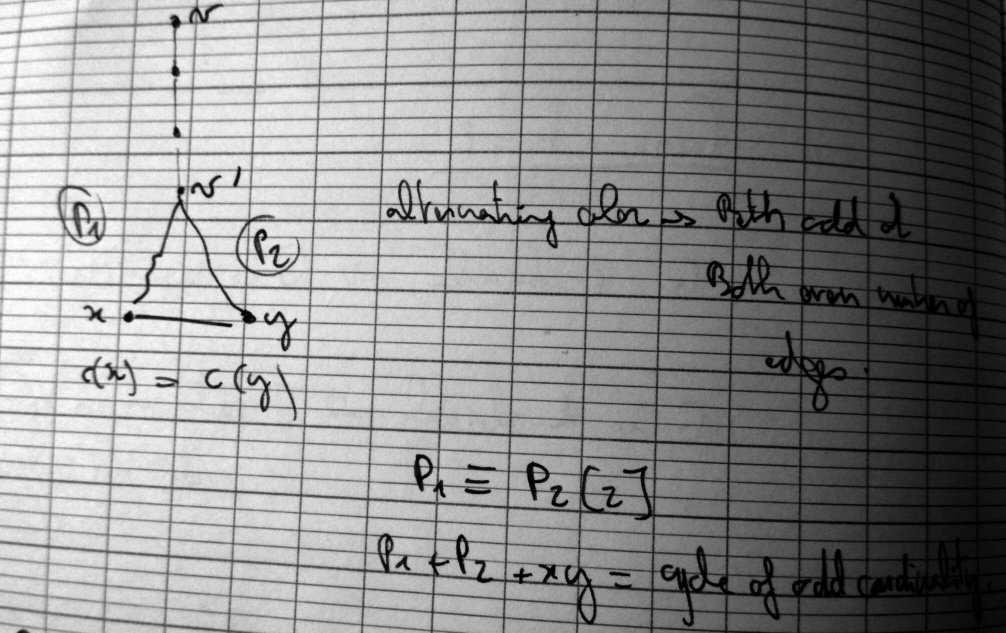 v
v'
P1
alternating color => Both odd or
P2
Both even number of
x y
edges.
c(x) = c(y)
P1 ≡ P2 [2]
P1 + P2 + xy = cycle of odd cardinality.